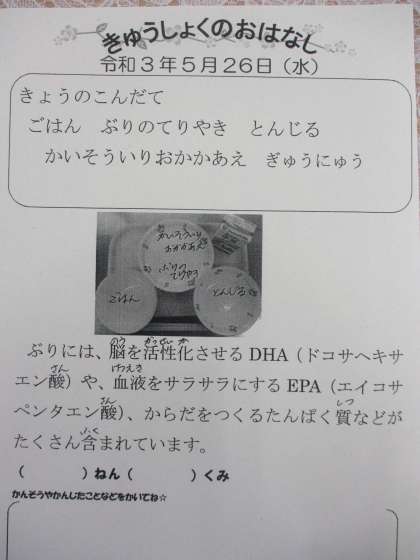 きゅうしょくのおはなし
令和3年5月26日（水）
きょうのこんだて
ごはん　ぶりのてりやき　とんじる
かいそういりおかかあえ　ぎゅうにゅう
かいそういり
おかかあえ
ぶりの
てりやき
ごはん
とんじる
ぶりには、脳を活性化させる DHA（ドコサヘキサ
エン酸）や、血液をサラサラにする EPA（エイコサ
ペンタエン酸）、からだをつくるたんぱく質などが
たくさん含まれています。
（　　　）ねん（　　　）くみ
かんそうやかんじたことなどをかいてね☆